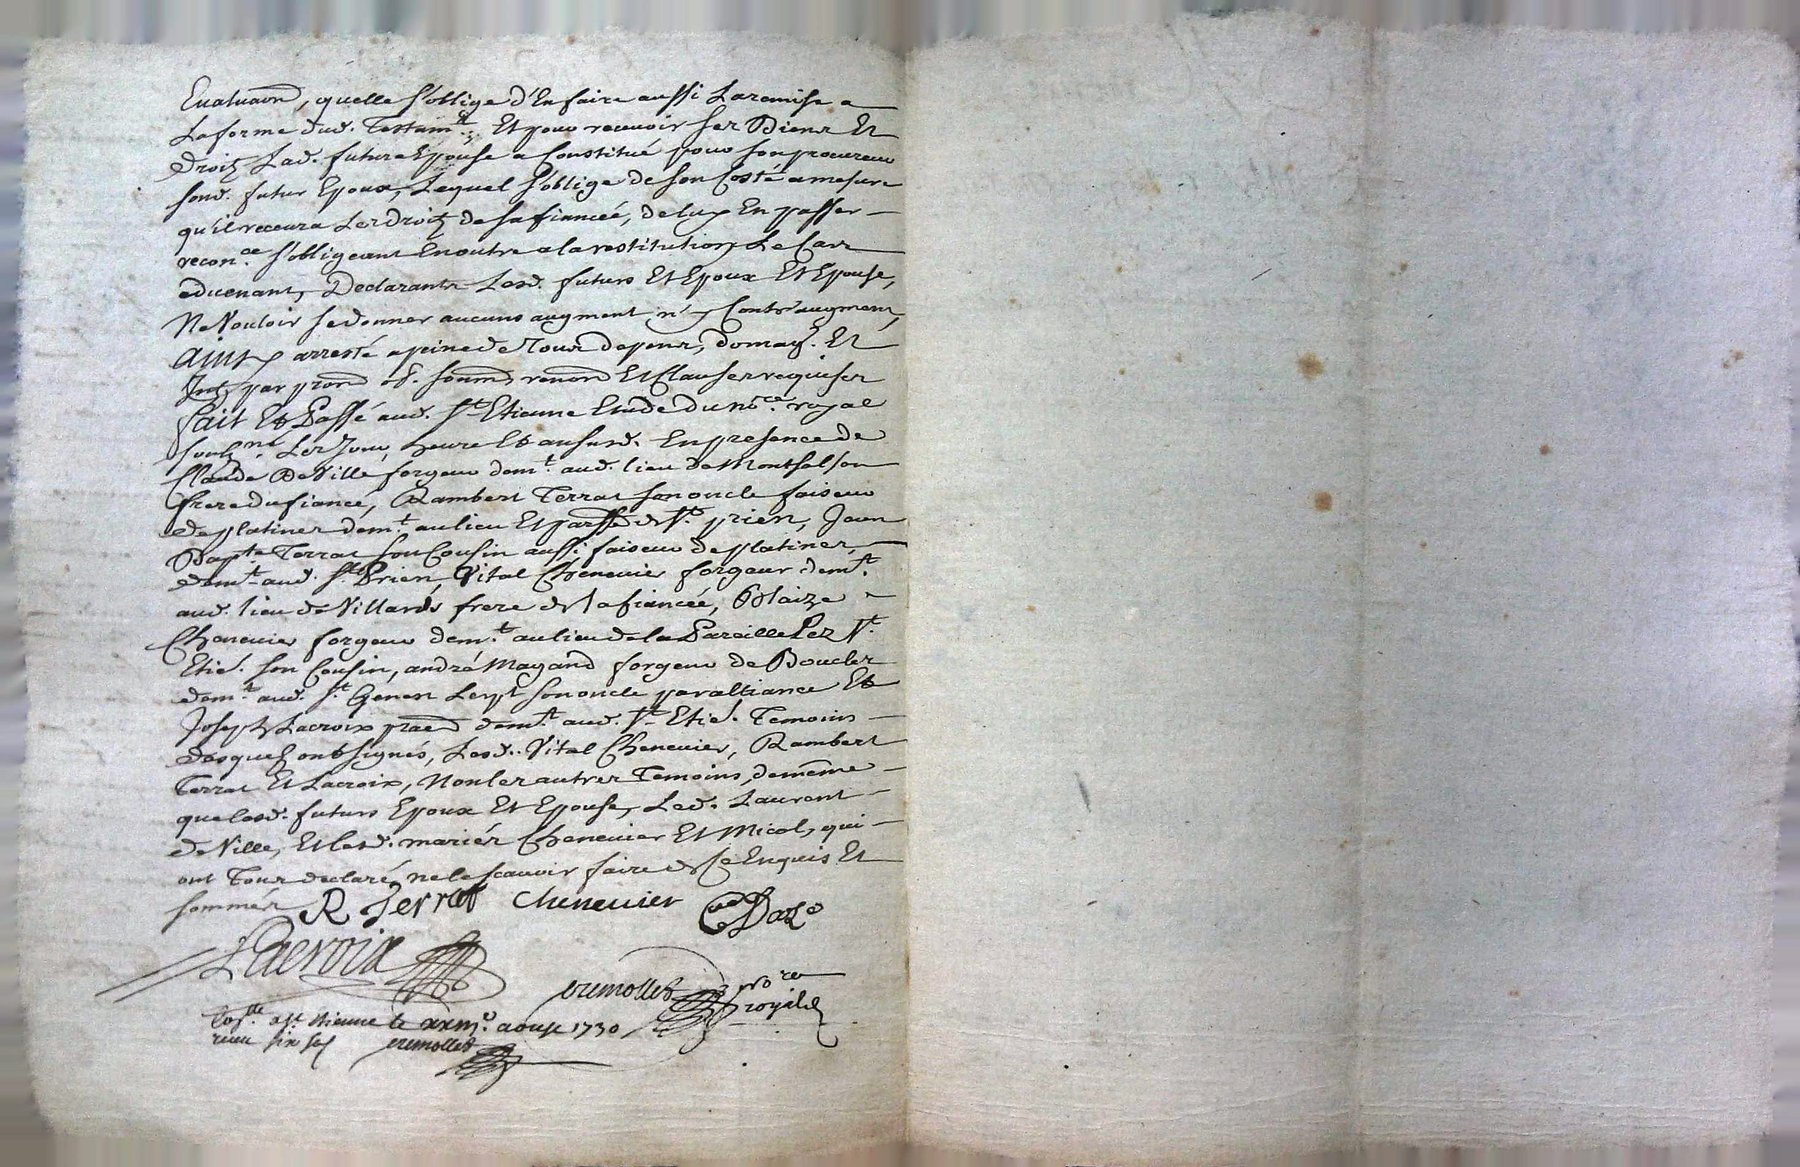 Evaluaon, quelle s'oblige d'En faire aussi La remise a
La forme dud. Testamt. Et pour recevoir ses Biens Et
droitz Lad. future Epouse a Constitué pour son procureur
sond. futur Epoux, Lequel s'oblige de son Costé a mesure
qu'il recevra Les droitz de sa fiancée, de luy En passer
reconce. s'obligeant En outre a la restitution Le Cas
advenant, Declarants Lesd. futurs Et Epoux Et Epouse,
Ne Vouloir se donner aucuns augment n'y Contr'augment,
ainsy arresté a peine de Tous depens, domag. Et
Intz par promon ob. soumon renonon Et Clauses requises
fait Et Passé aud. St Etienne Etude du nore. royal
soubzné. Les Jour, heure Et an susd. En presence de
Claude De Ville forgeur demt. aud. lieu de Montsalson
frere du fiancé, Rambert Terrat son oncle faiseur
de platines demt. au lieu Et parsse de St. prien, Jean
Bapte Terrat son Cousin aussi faiseur de platines,
demt. aud. St Prien, Vital Chenevier forgeur demt.
aud. lieu de Villards frere de la fiancée, Blaize
Chenevier forgeur demt. au lieu de la Pareille Lez St.
Etie. son Cousin, andré Magand forgeur de Boucles
demt. aud. St. Genes Lerpt son oncle par alliance Et
Joseph Lacroix praen demt. aud. St. Etie. Temoins
desquelz ont signés, Lesd. Vital Chenevier, Rambert
Terrat Et Lacroix, Non les autres Temoins, de meme
que lesd. futurs Epoux Et Epouse, Led. Laurent
de Ville, Et lesd. mariés Chenevier Et Micol, qui
ont Tous declaré ne le scavoir faire de Ce Enquis Et
sommés R Terrat Chenevier
Lacroix
cremollet nore
royal
Coslle. a St. Etienne le xxme. aoust 1730
receu six sol cremollet